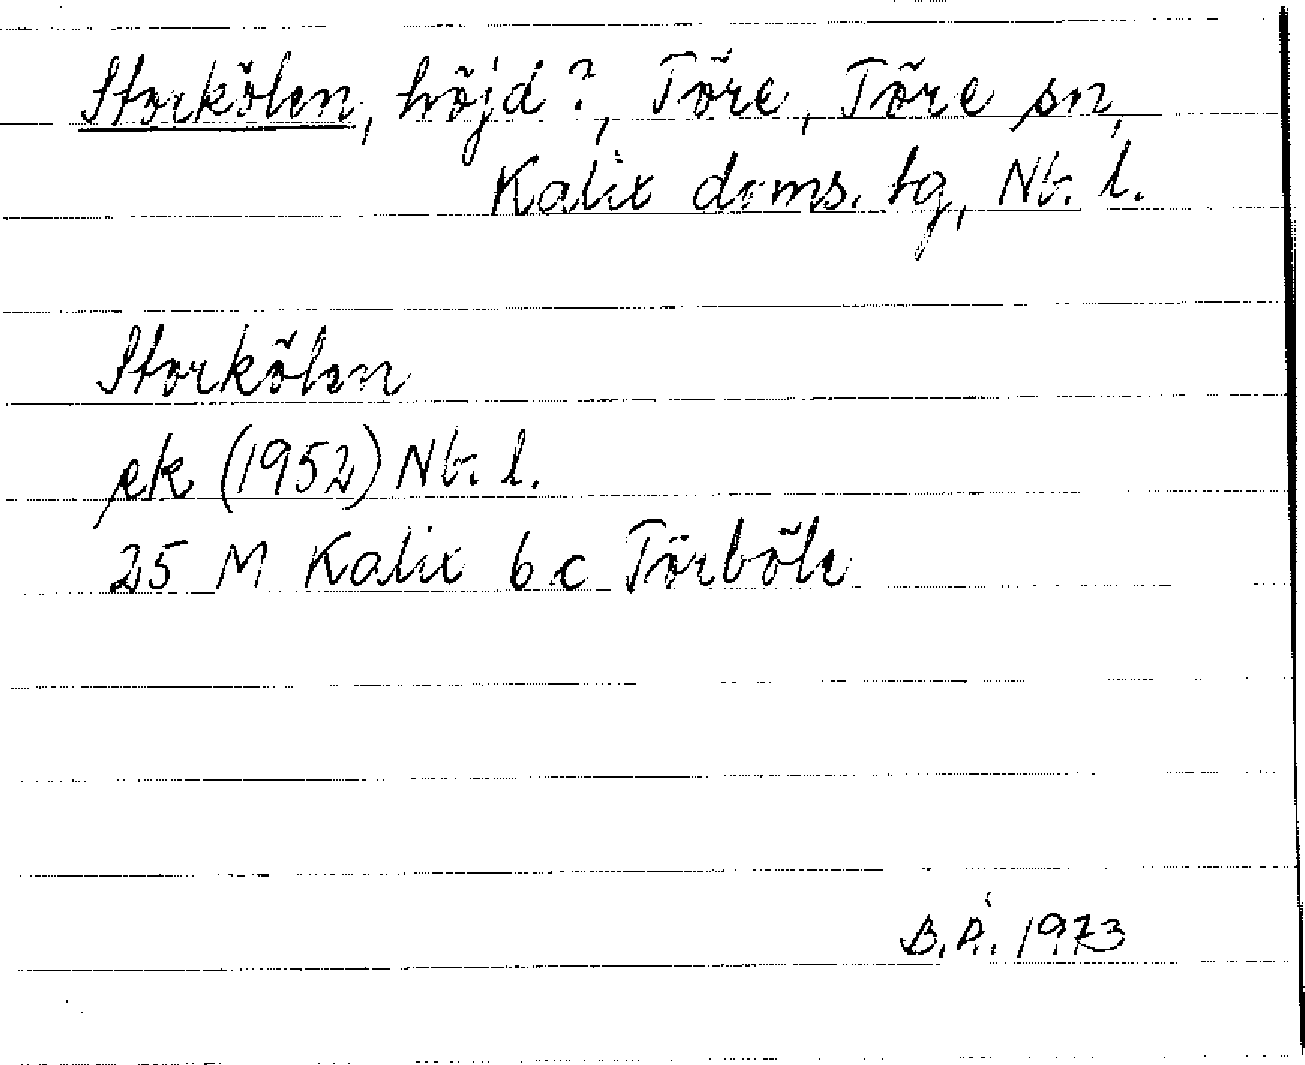 Storkölen, höjd?, Töre, Töre sn,
Kalix doms. tg, Nb. l.
Storkölen
ek (1952) Nb. l.
25 M Kalix 6 c Törböle
1973